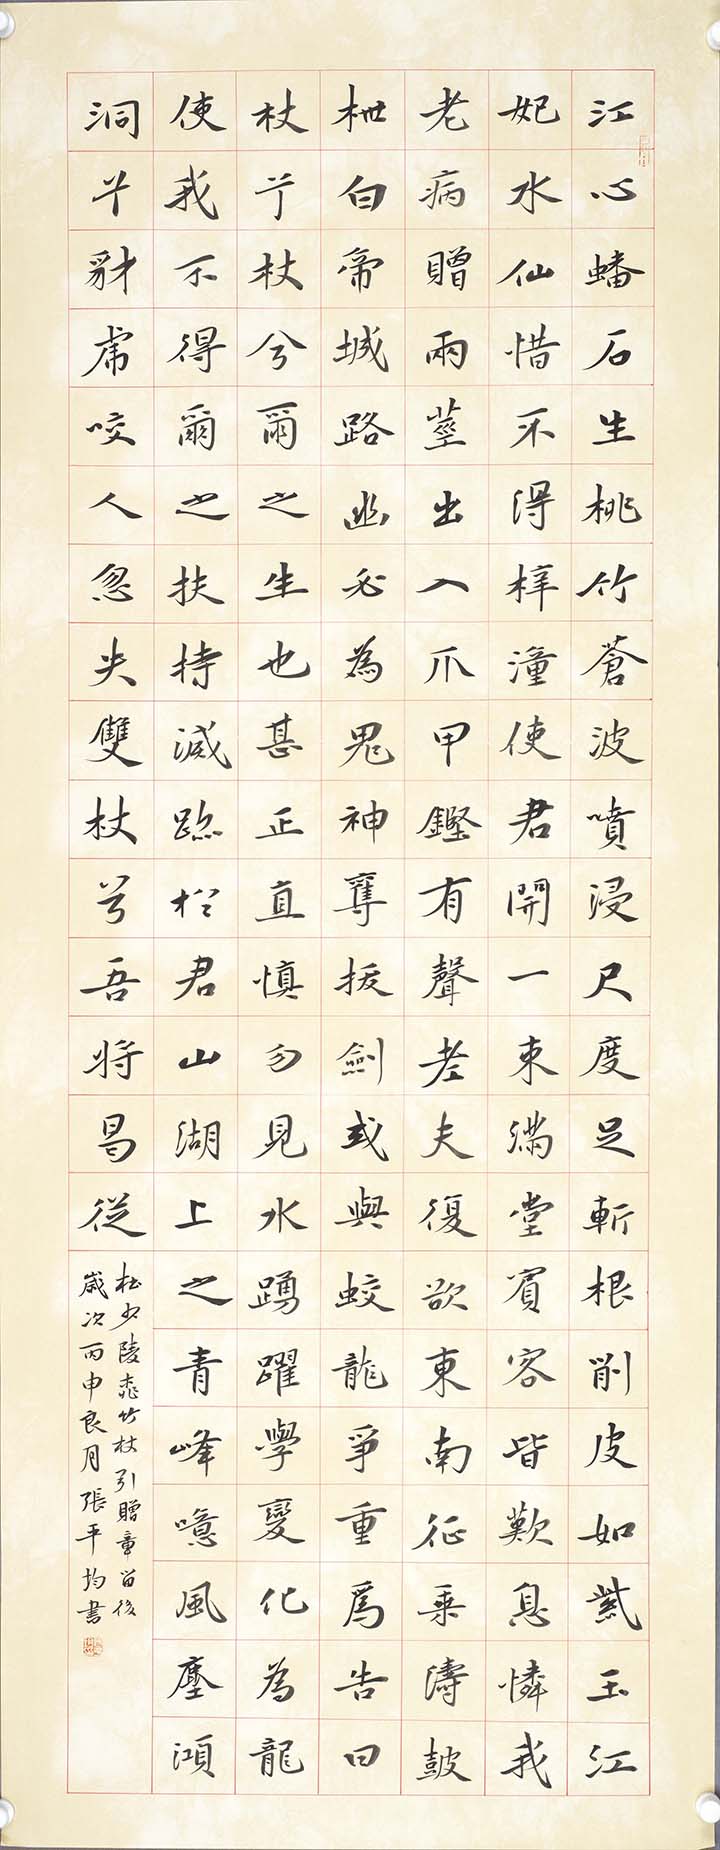 江心蟠石生桃竹蒼波噴浸尺度足斬根削皮如紫玉江
妃水仙惜不得梓潼使君開一束滿堂賓客皆歎息憐我
老病贈兩莖出入爪甲鏗有聲老夫復欲東南征乘濤鼓
枻白帝城路幽必為鬼神奪拔劍或與蛟龍爭重爲告曰
杖兮杖兮爾之生也甚正直慎勿見水踴躍學變化為龍
使我不得爾之扶持滅跡於君山湖上之青峰噫風塵澒
洞兮豺虎咬人忽失雙杖兮吾將曷從
杜少陵桃竹杖引贈章留後
歲次丙申良月張平均書